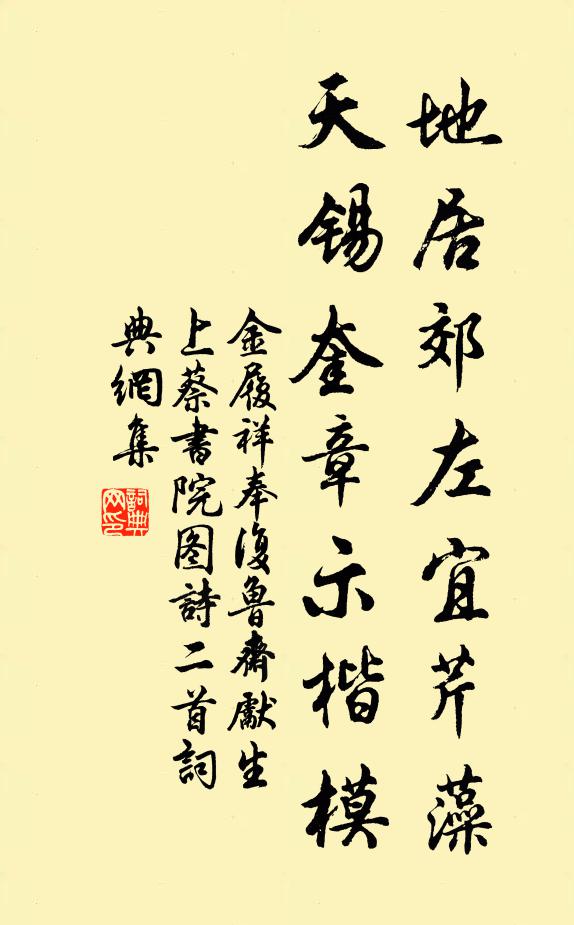 地居郊左宜芹藻
天锡奎章示楷模
金履祥奉復魯齋獻生
上蔡書院图詩二首詞
典網集
詞典
网印